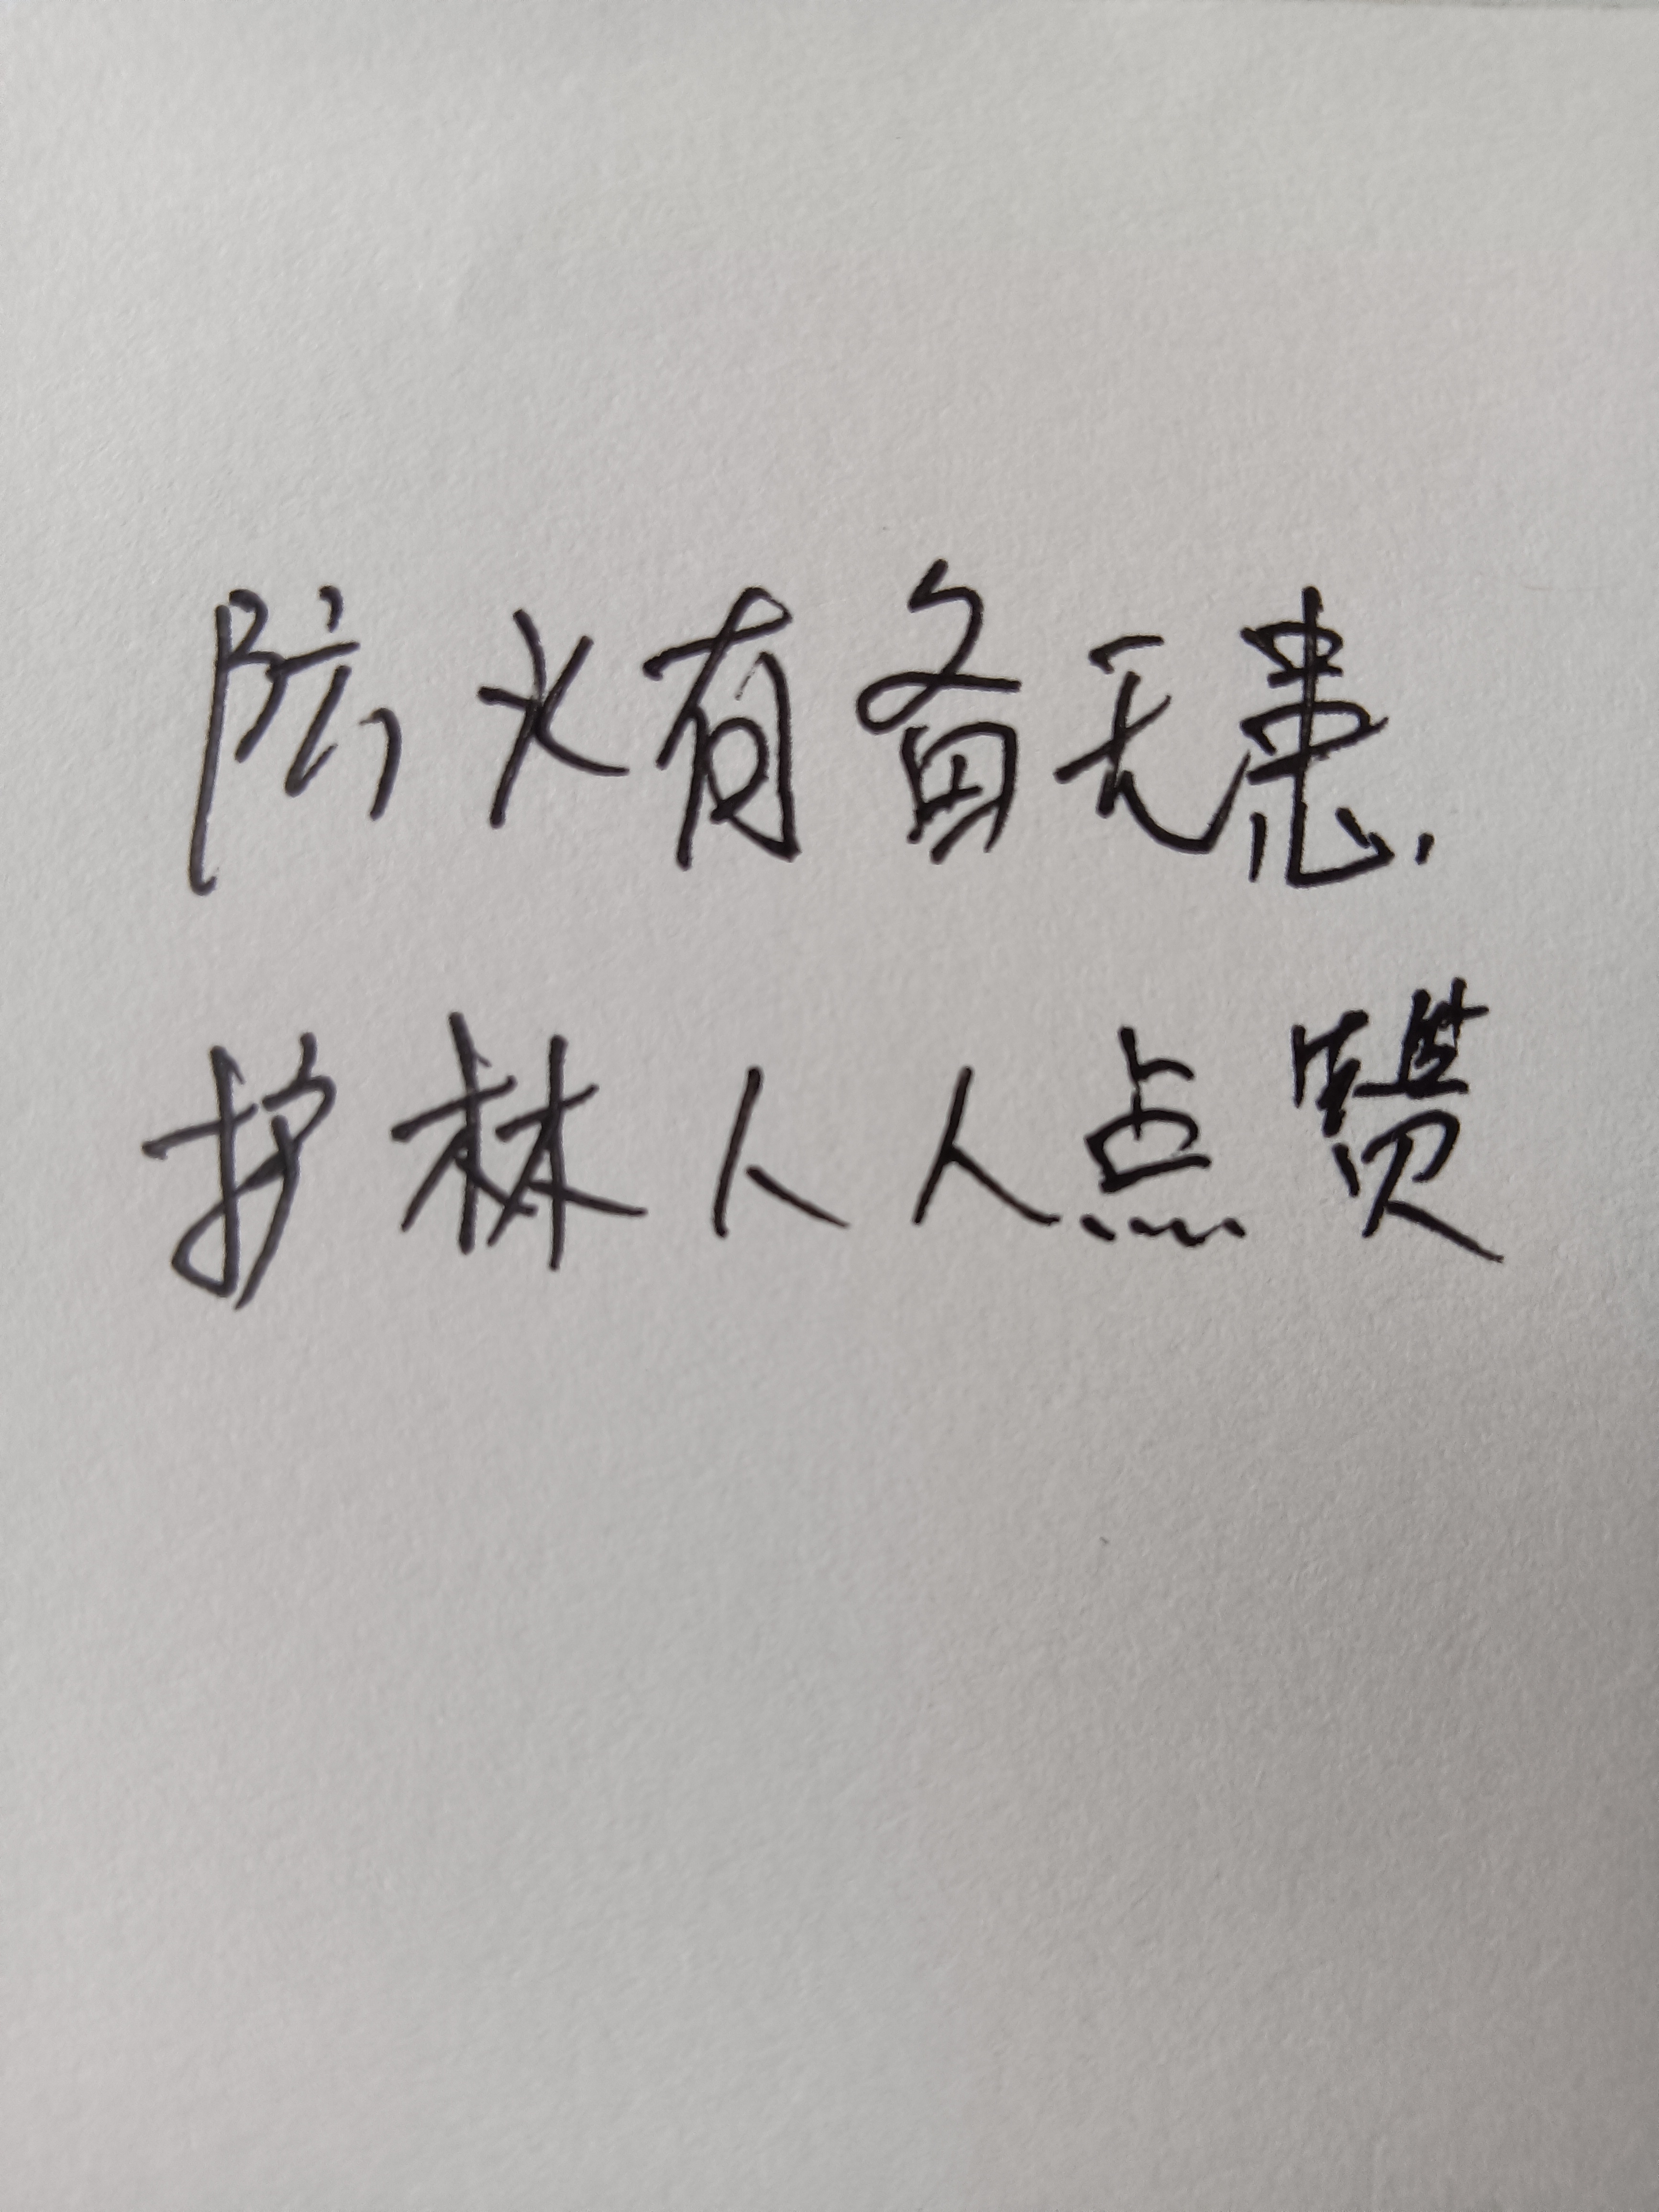 防火有备无患
护林人人点赞